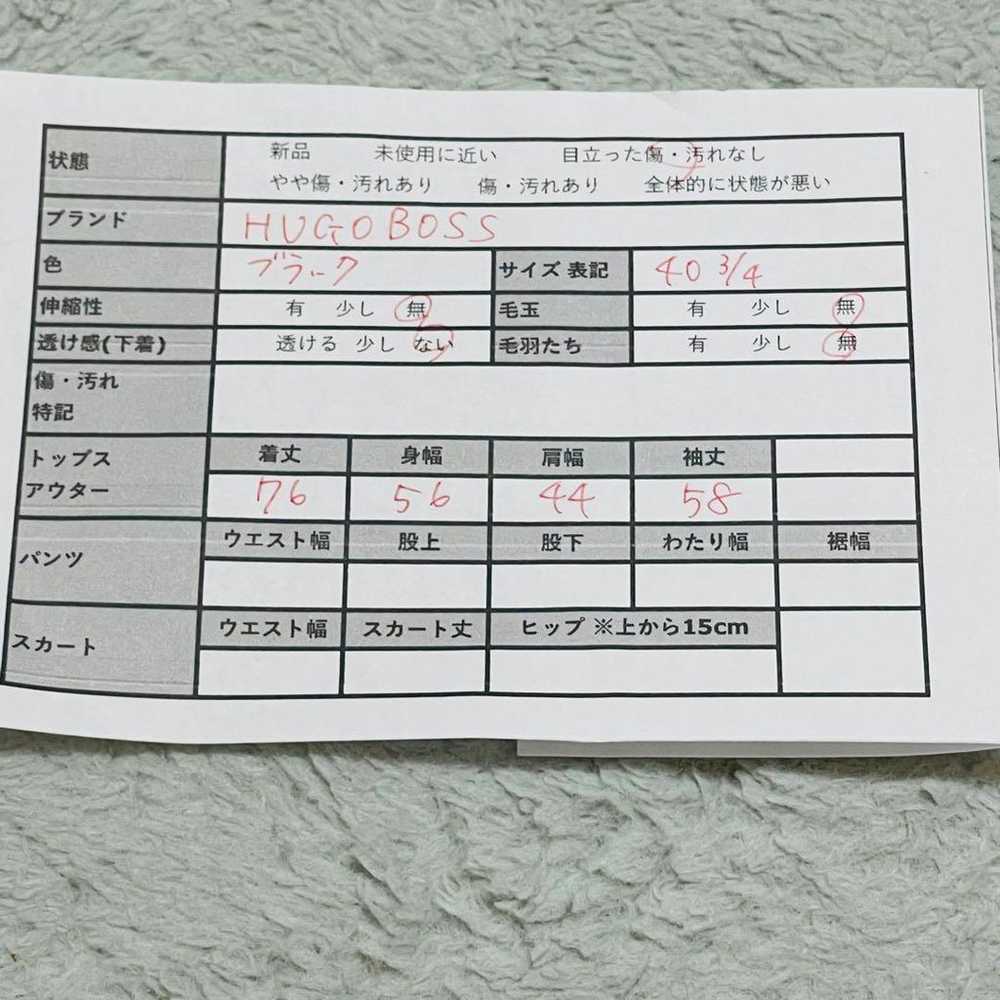 状態 新品 未使用に近い 目立った傷・汚れなし
やや傷・汚れあり 傷・汚れあり 全体的に状態が悪い
ブランド HUGO BOSS
色 ブラック サイズ 表記 40 3/4
伸縮性 有 少し 無 毛玉 有 少し 無
透け感(下着) 透ける 少し ない 毛羽たち 有 少し 無
傷・汚れ
特記
トップス 着丈 身幅 肩幅 袖丈
アウター 76 56 44 58
パンツ ウエスト幅 股上 股下 わたり幅 裾幅
スカート ウエスト幅 スカート丈 ヒップ ※上から15cm